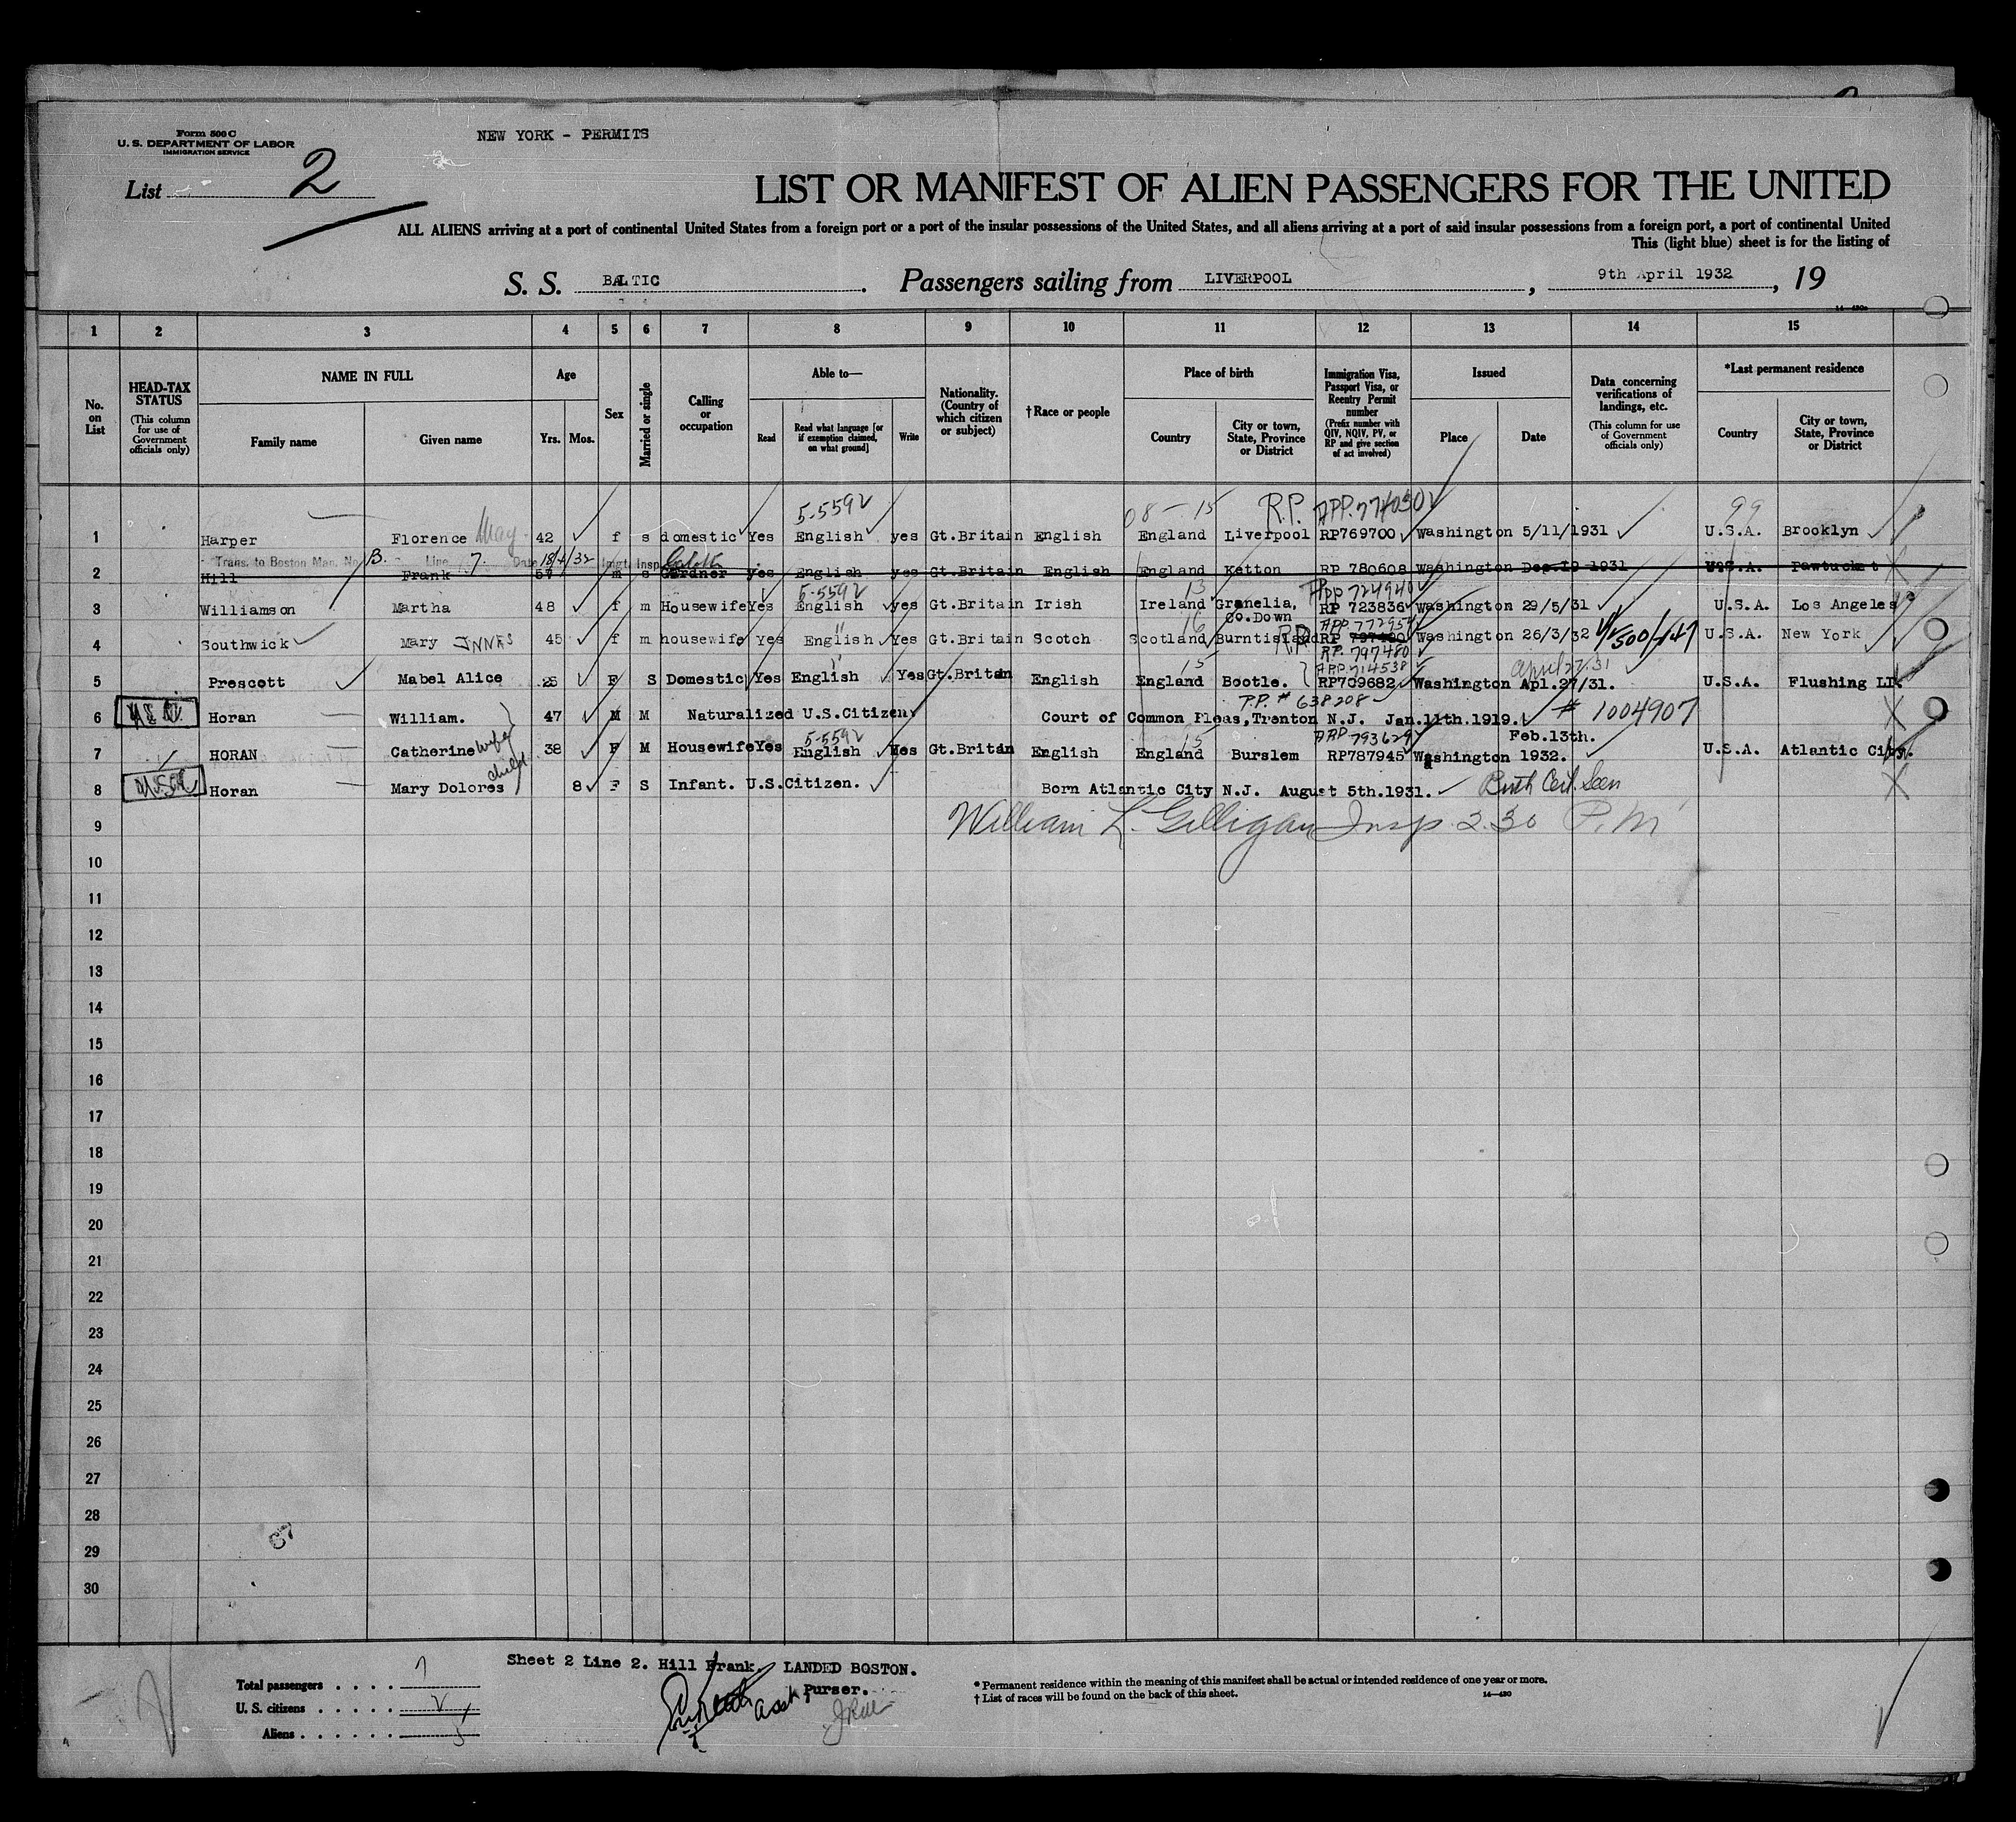 Form 500 C
U. S. DEPARTMENT OF LABOR
IMMIGRATION SERVICE
NEW YORK - PERMITS
List 2
LIST OR MANIFEST OF ALIEN PASSENGERS FOR THE UNITED
ALL ALIENS arriving at a port of continental United States from a foreign port or a port of the insular possessions of the United States, and all aliens arriving at a port of said insular possessions from a foreign port, a port of continental United
This (light blue) sheet is for the listing of
S. S. BALTIC. Passengers sailing from LIVERPOOL, 9th April 1932, 19
14—430a
1 2 3 4 5 6 7 8 9 10 11 12 13 14 15
No. on List
HEAD-TAX STATUS
(This column for use of Government officials only)
NAME IN FULL
Family name
Given name
Age
Yrs. Mos.
Sex
Married or single
Calling or occupation
Able to—
Read
Read what language [or if exemption claimed, on what ground]
Write
Nationality. (Country of which citizen or subject)
†Race or people
Place of birth
Country
City or town, State, Province or District
Immigration Visa, Passport Visa, or Reentry Permit number
(Prefix number with QIV, NQIV, PV, or RP and give section of act involved)
Issued
Place
Date
Data concerning verifications of landings, etc.
(This column for use of Government officials only)
*Last permanent residence
Country
City or town, State, Province or District
5-559 08 - 15 R.P. APP. 774030 99
1 Harper Florence May 42 f s domestic Yes English yes Gt.Britain English England Liverpool RP769700 Washington 5/11/1931 U.S.A. Brooklyn
Trans. to Boston Man. No. B. Line 7. Date 18/4/32 Imgt. Insp.
2 Hill Frank 57 m s Gardner yes English yes Gt.Britain English England Ketton RP 780608 Washington Dep.19 1931 U.S.A. Pawtucket
5-559 13 App 724940
3 Williamson Martha 48 f m Housewife Yes English yes Gt.Britain Irish Ireland Granelia, Co.Down RP 723836 Washington 29/5/31 U.S.A. Los Angeles
" 16 APP. 772954
4 Southwick Mary INNES 45 f m housewife Yes English Yes Gt.Britain Scotch Scotland Burntisland RP 797480 Washington 26/3/32 U.S.A. New York
RP. 797480
" 15 APP. 714538 April 27.31
5 Prescott Mabel Alice 28 F S Domestic Yes English Yes Gt.Britain English England Bootle. RP709682 Washington Apl.27/31. U.S.A. Flushing LI.
P.P. # 638208
6 Horan William. 47 M M Naturalized U.S.Citizen. Court of Common Pleas,Trenton N.J. Jan.11th.1919. # 1004907
5-559 15 APP 793629 Feb.13th.
7 HORAN Catherine wife 38 F M Housewife Yes English Yes Gt.Britain English England Burslem RP787945 Washington 1932. U.S.A. Atlantic City.
8 Horan Mary Dolores child 8 F S Infant. U.S.Citizen. Born Atlantic City N.J. August 5th.1931. Birth Cert. Seen
9 William L. Gilligan Insp 2.30 P.M
10
11
12
13
14
15
16
17
18
19
20
21
22
23
24
25
26
27
28
29
30
67
Sheet 2 Line 2. Hill Frank. LANDED BOSTON.
Total passengers . . . . 7
U. S. citizens . . . . . 2
Aliens . . . . . . 5
asst Purser.
* Permanent residence within the meaning of this manifest shall be actual or intended residence of one year or more.
† List of races will be found on the back of this sheet.
14—430